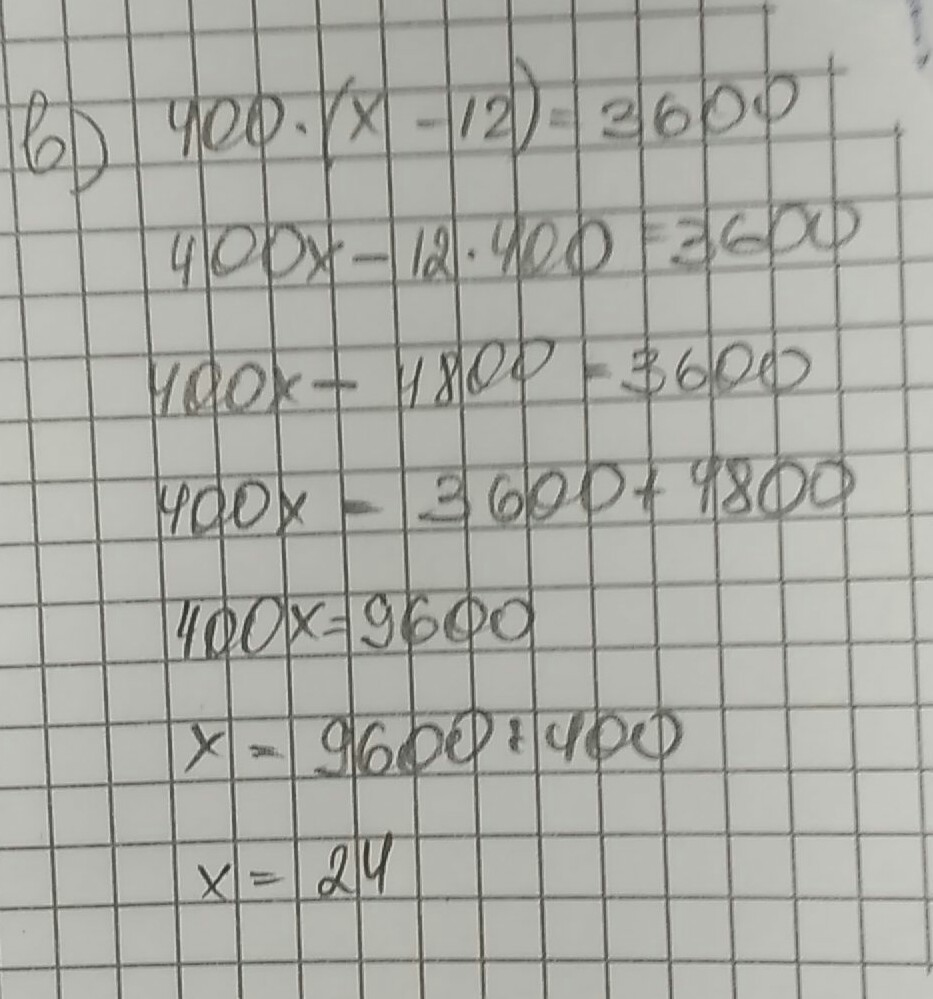 в) 400·(x-12)=3600
400x-12·400=3600
400x-4800=3600
400x=3600+4800
400x=9600
x=9600:400
x=24